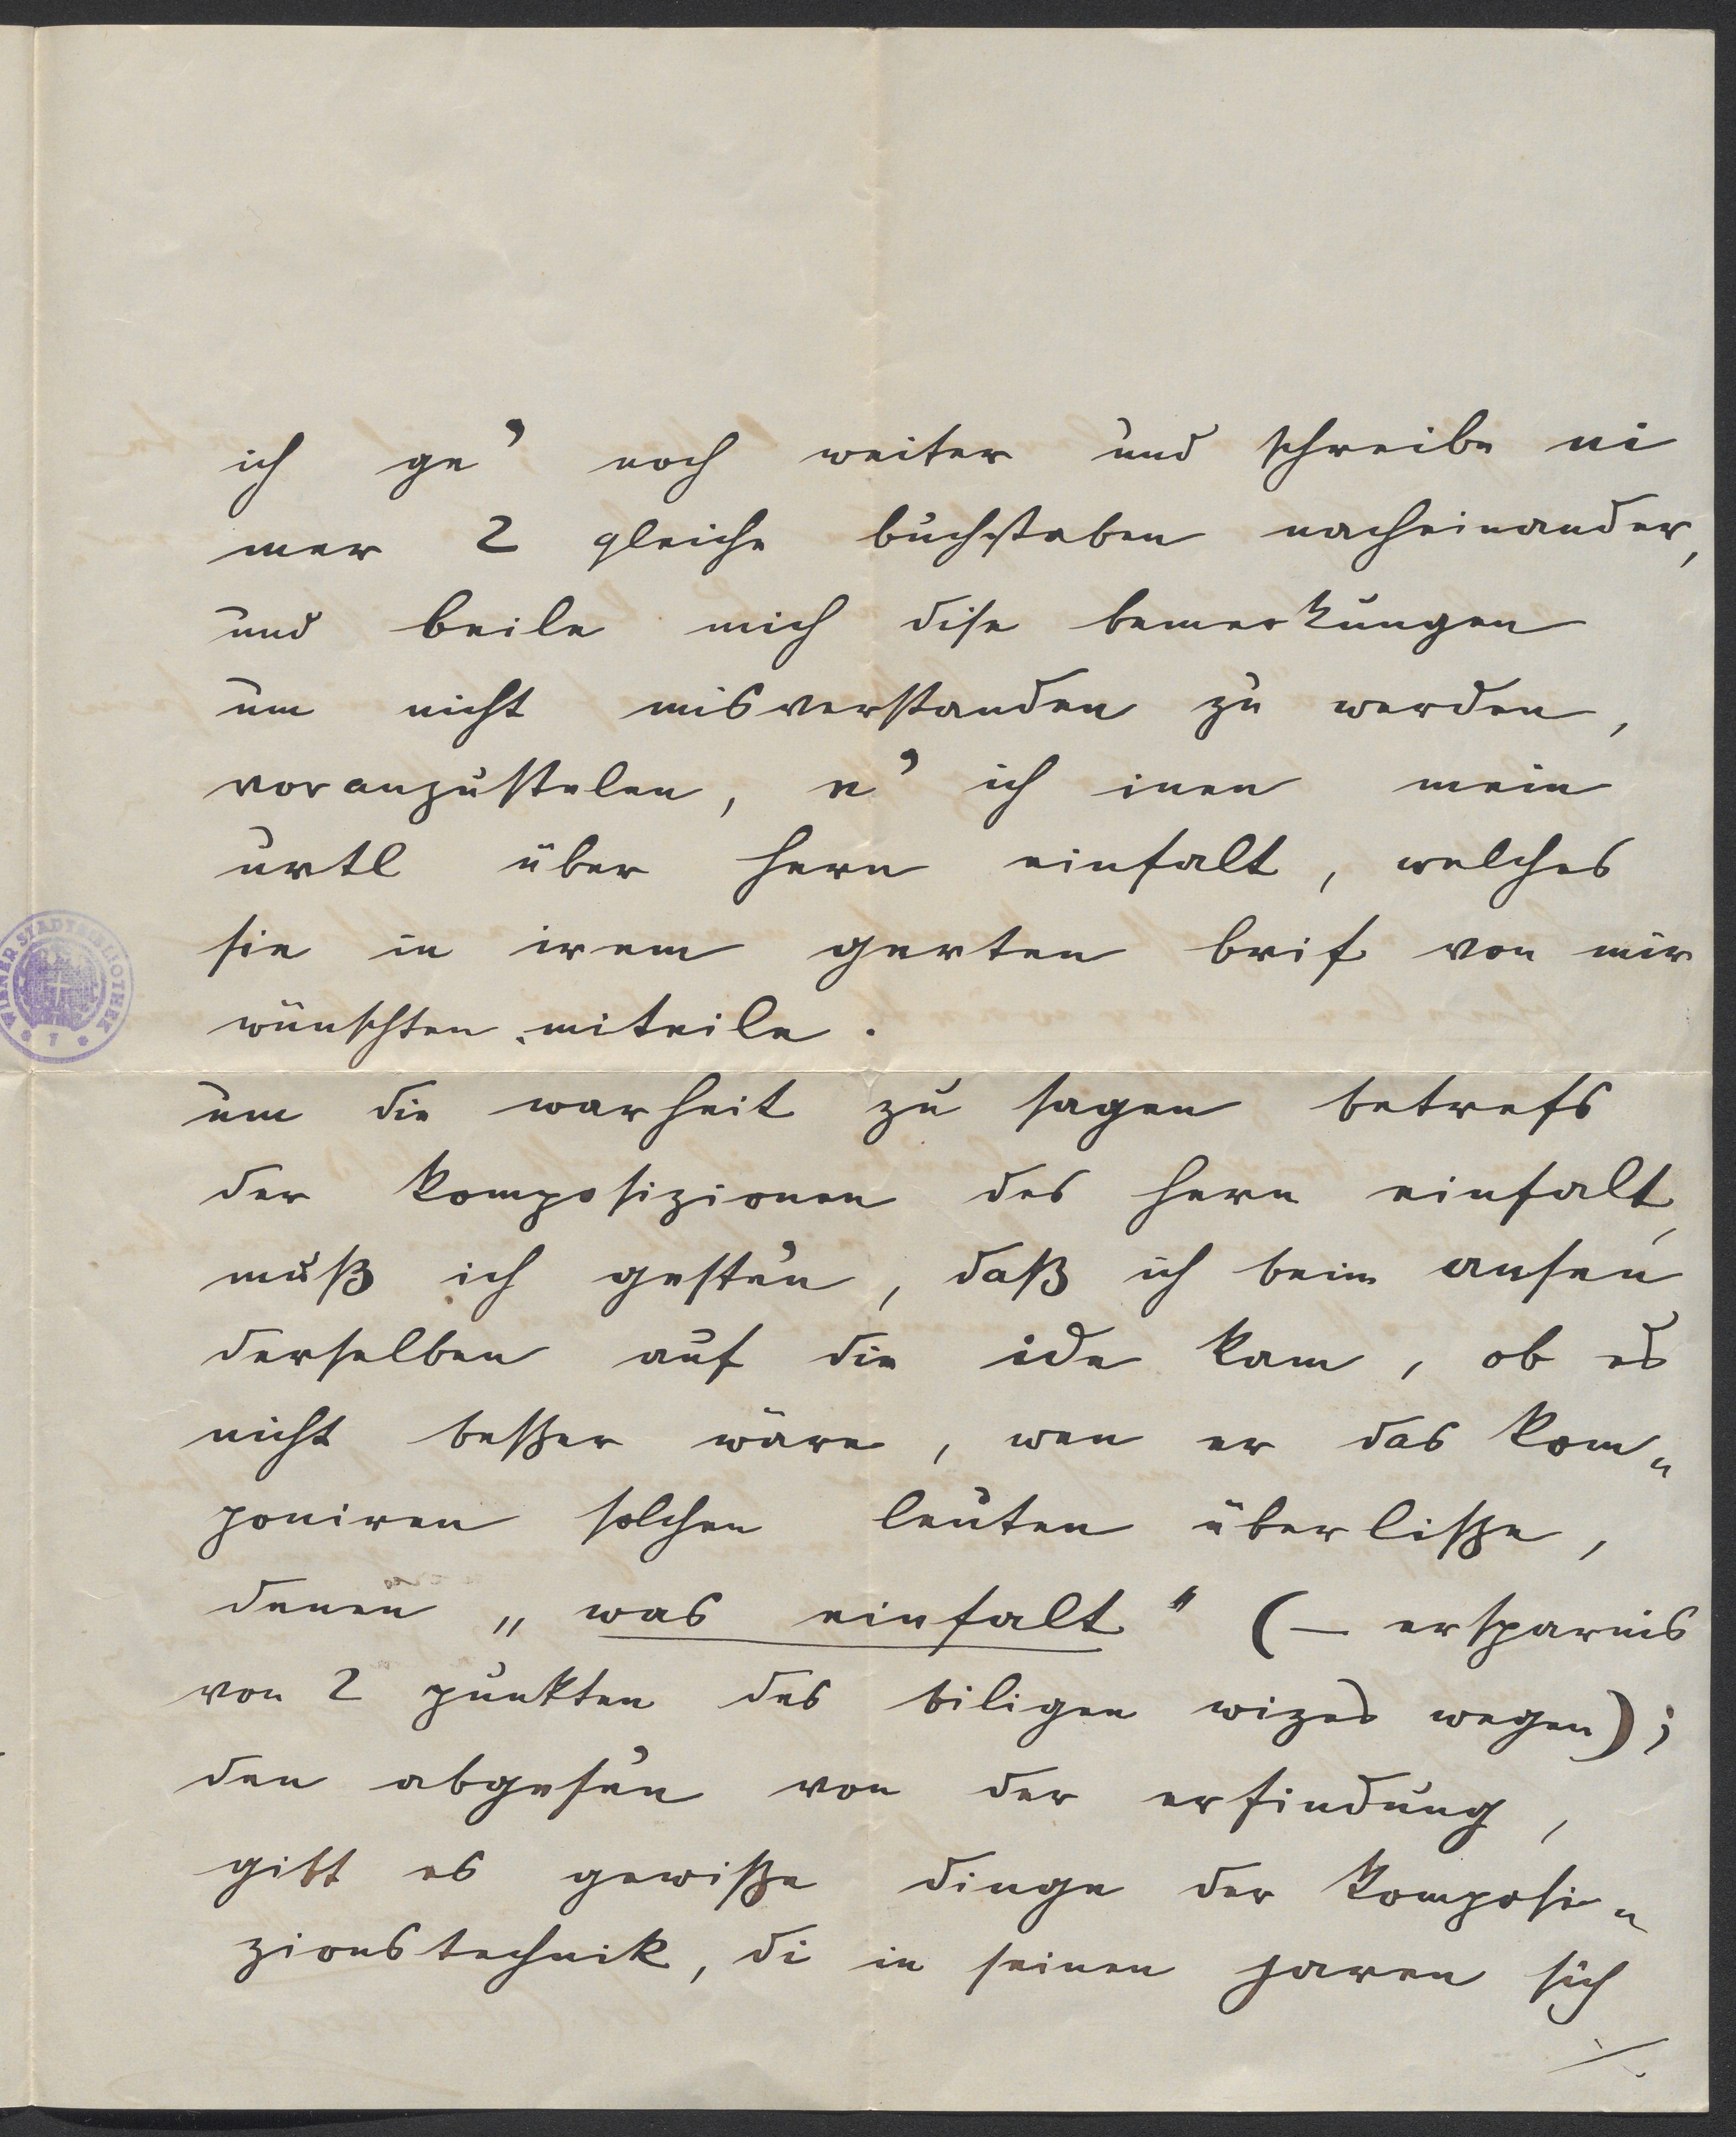 ich ge' noch weiter und schreibe ni
mer 2 gleiche buchstaben nacheinander,
und beile mich dise bemerkungen
um nicht misverstanden zu werden,
voranzustelen, e' ich inen mein
urtl über hern einfalt, welches
sie in irem gerten brif von mir
wünschten, miteile.
um die warheit zu sagen betrefs
der komposizionen des hern einfalt,
muß ich geste'n, daß ich beim anse'n
derselben auf die ide kam, ob es
nicht beßer wäre, wen er das kom„
poniren solchen leuten überliße,
denen „was einfalt" (— ersparnis
von 2 punkten des biligen wizes wegen);
den abgese'n von der erfindung,
gibt es gewiße dinge der komposi„
zionstechnik, di in seinen jaren sich
./.
WIENER STADTBIBLIOTHEK